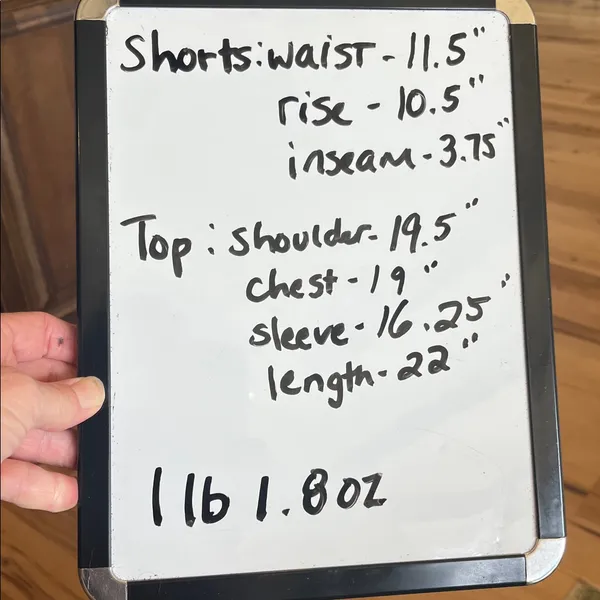 Shorts: waist - 11.5"
rise - 10.5"
inseam - 3.75"
Top: shoulder - 19.5"
chest - 19"
sleeve - 16.25"
length - 22"
1 lb 1.8 oz